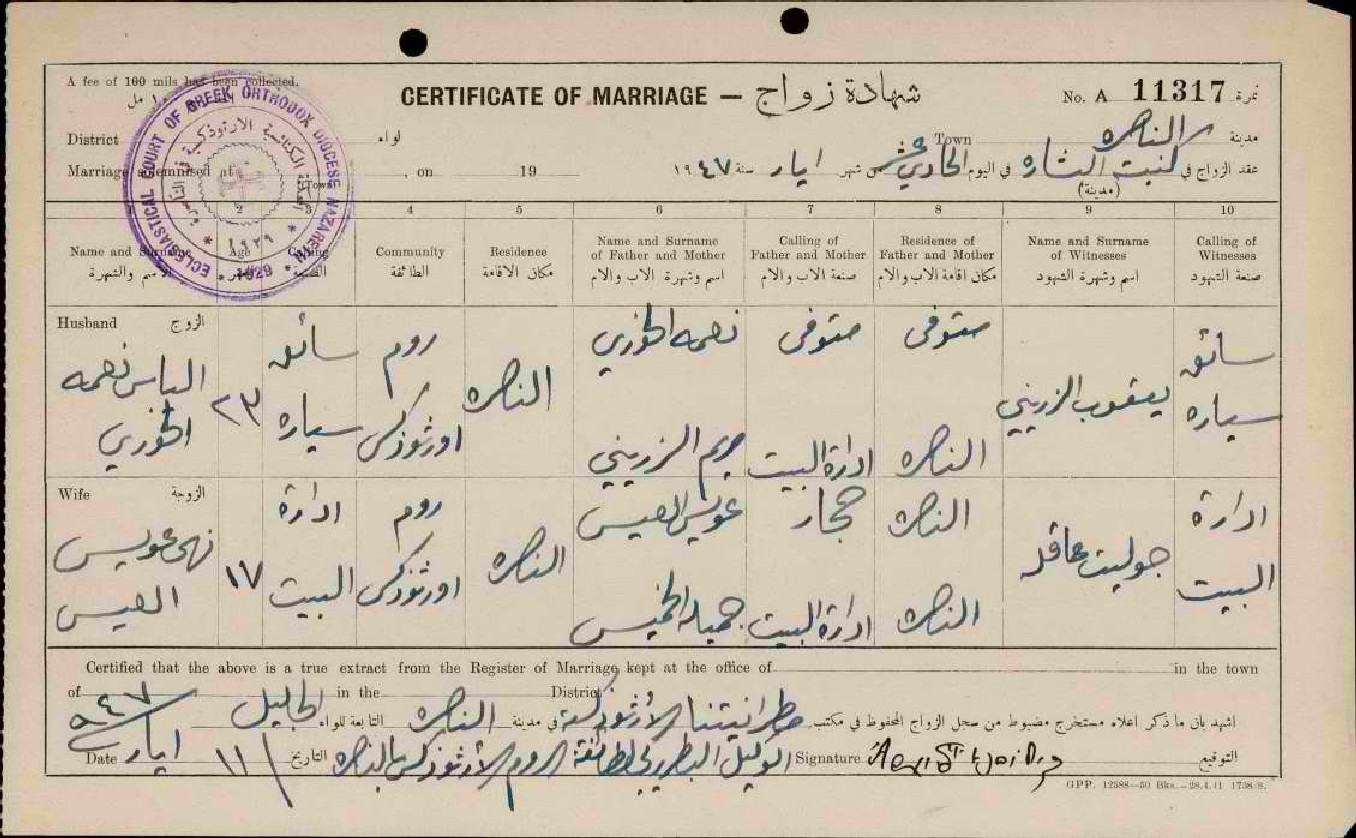 A fee of 100 mils has been collected.
CERTIFICATE OF MARRIAGE — شهادة زواج
No. A 11317 نمرة
District لواء
Town الناصره مدينة
Marriage solemnised at , on 19
عقد الزواج في كنيسة في اليوم الحادي عشر شهر ايار سنة ١٩٤٧
(مدينة)
ECCLESIASTICAL COURT OF GREEK ORTHODOX DIOCESE NAZARETH
١٩٢٩
1929
2 3 4 5 6 7 8 9 10
Name and Surname Age Calling Community Residence Name and Surname of Father and Mother Calling of Father and Mother Residence of Father and Mother Name and Surname of Witnesses Calling of Witnesses
الاسم والشهرة الصنعة الطائفة مكان الاقامة اسم وشهرة الاب والام صنعة الاب والام مكان اقامة الاب والام اسم وشهرة الشهود صنعة الشهود
Husband الزوج
الياس نعمه الخوري
٢٣
سائق سياره
روم اورثوذكس
الناصره
نعمه الخوري
متوفى
متوفى
مريم الزريني
ادارة البيت
الناصره
يعقوب الزريني
سائق سياره
Wife الزوجة
نهى عويس العيس
١٧
ادارة البيت
روم اورثوذكس
الناصره
عويس العيس
حجار
الناصره
جميله الخميس
ادارة البيت
الناصره
جوليت عاقله
ادارة البيت
Certified that the above is a true extract from the Register of Marriage kept at the office of in the town
of in the District
اشهد بان ما ذكر اعلاه مستخرج مضبوط من سجل الزواج المحفوظ في مكتب مطرانيتنا الارثوذكسية في مدينة الناصره التابعة للواء الجليل
Date ١١ ايار ٩٤٧ التاريخ
الوكيل البطريركي لطائفة الروم الارثوذكس بالناصره
Signature التوقيع
G.P.P. 12588—50 Bks.—28.4.41